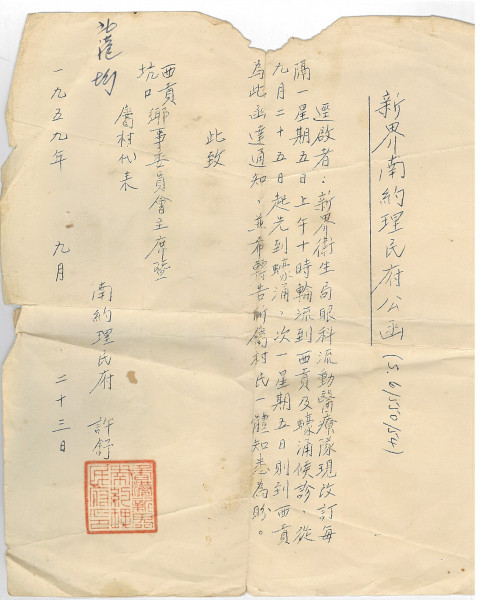 新界南約理民府公函 (5.6/550/54)
逕啟者:新界衛生局眼科流動醫療隊現改訂每
隔一星期五日上午十時輪流到西貢及蠔涌候診,從
九月二十五日起先到蠔涌,次一星期五日則到西貢
為此函達通知,並希轉告所屬村民一體知悉為盼。
此致
西貢
坑口 鄉事委員會主席暨
屬村代表
南約理民府 許舒
一九五九年 九月 二十三日